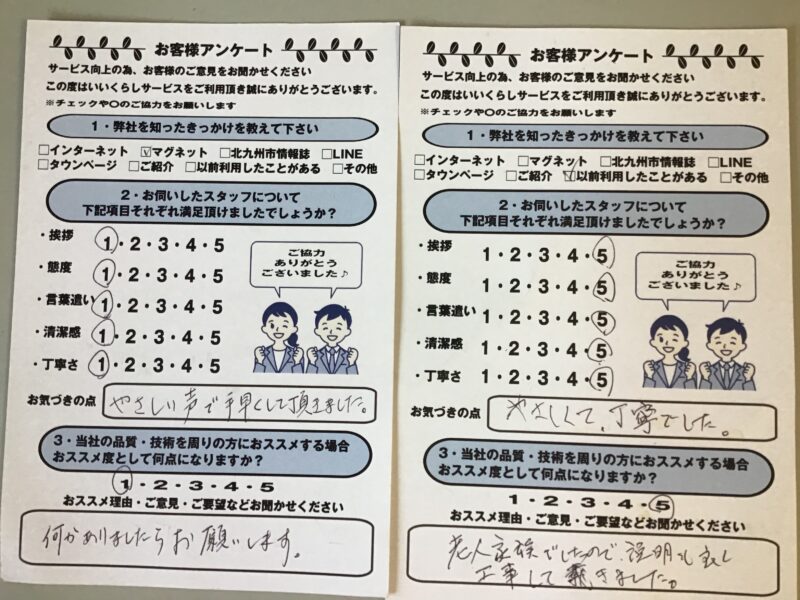 お客様アンケート
サービス向上の為、お客様のご意見をお聞かせください
この度はいいくらしサービスをご利用頂き誠にありがとうございます。
※チェックや〇のご協力をお願いします
1・弊社を知ったきっかけを教えて下さい
□インターネット ☑マグネット □北九州市情報誌 □LINE
□タウンページ □ご紹介 □以前利用したことがある □その他
2・お伺いしたスタッフについて
下記項目それぞれ満足頂けましたでしょうか？
・挨拶 1・2・3・4・5
・態度 1・2・3・4・5
・言葉遣い 1・2・3・4・5
・清潔感 1・2・3・4・5
・丁寧さ 1・2・3・4・5
ご協力
ありがとう
ございました♪
お気づきの点 やさしい声で手早くして頂きました。
3・当社の品質・技術を周りの方におススメする場合
おススメ度として何点になりますか？
1・2・3・4・5
おススメ理由・ご意見・ご要望などお聞かせください
何かありましたらお願いします。
お客様アンケート
サービス向上の為、お客様のご意見をお聞かせください
この度はいいくらしサービスをご利用頂き誠にありがとうございます。
※チェックや〇のご協力をお願いします
1・弊社を知ったきっかけを教えて下さい
□インターネット □マグネット □北九州市情報誌 □LINE
□タウンページ □ご紹介 ☑以前利用したことがある □その他
2・お伺いしたスタッフについて
下記項目それぞれ満足頂けましたでしょうか？
・挨拶 1・2・3・4・5
・態度 1・2・3・4・5
・言葉遣い 1・2・3・4・5
・清潔感 1・2・3・4・5
・丁寧さ 1・2・3・4・5
ご協力
ありがとう
ございました♪
お気づきの点 やさしくて、丁寧でした。
3・当社の品質・技術を周りの方におススメする場合
おススメ度として何点になりますか？
1・2・3・4・5
おススメ理由・ご意見・ご要望などお聞かせください
老人家族でしたので説明も
工事して戴きました。